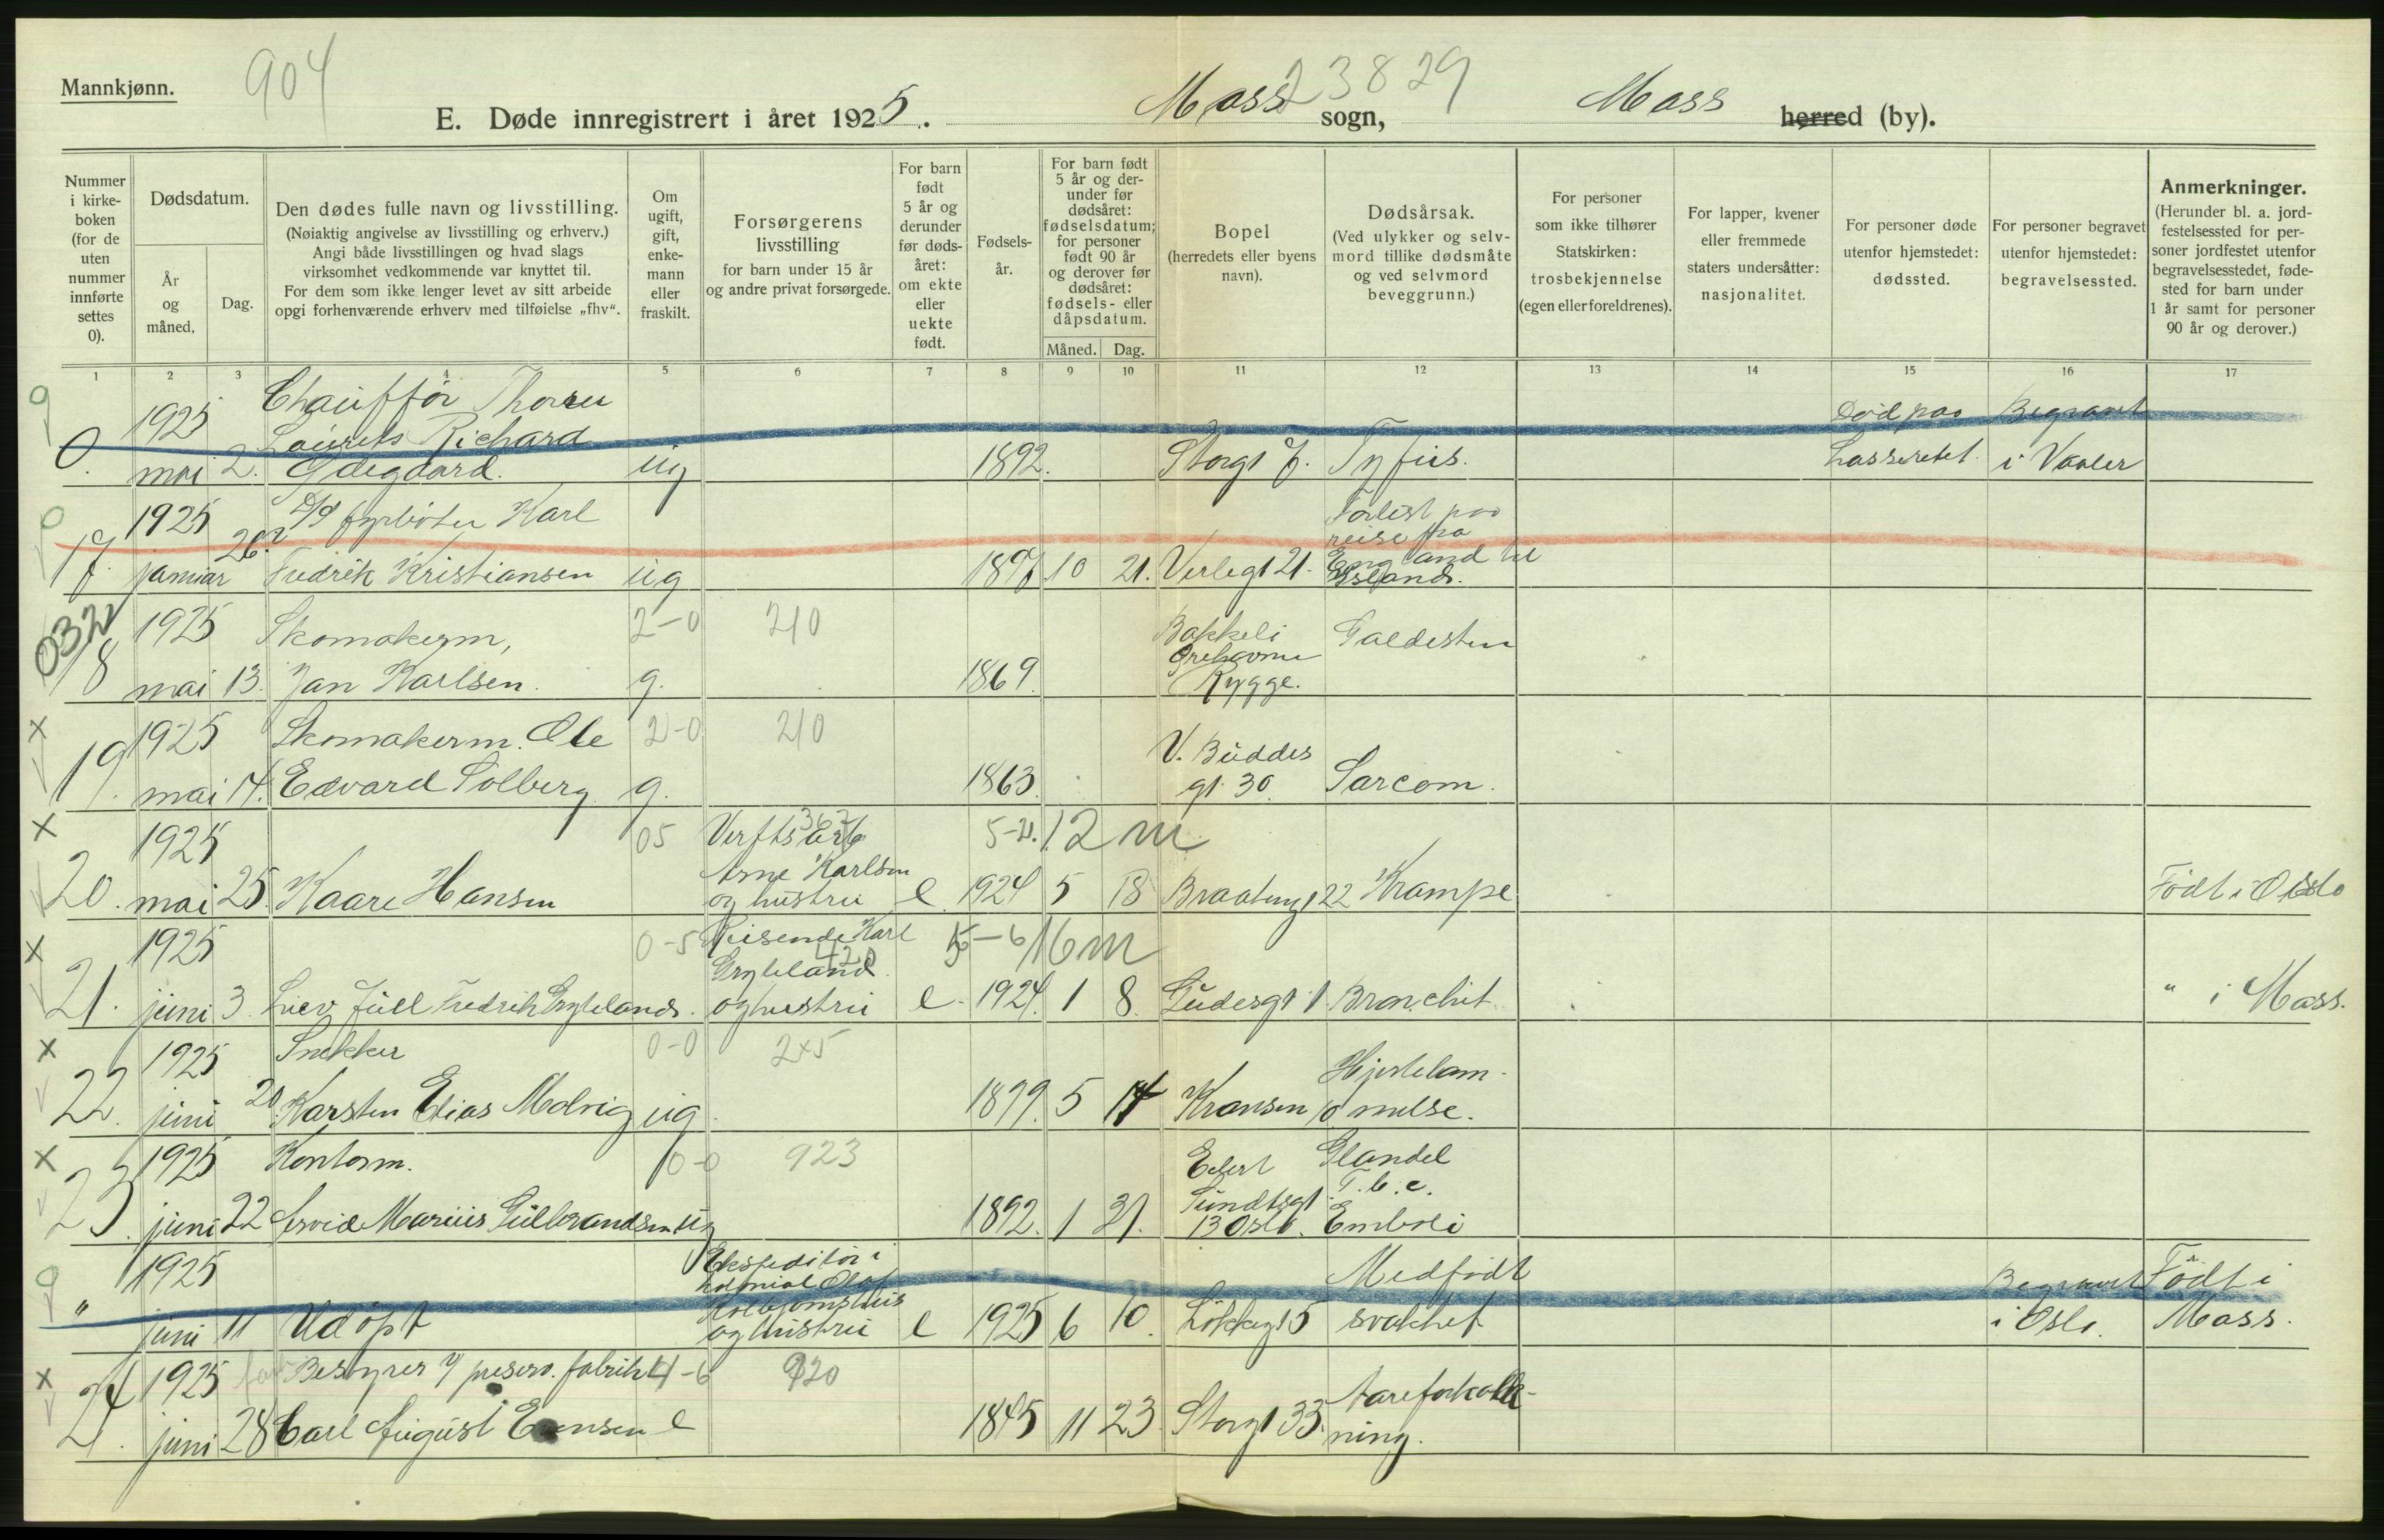 Mannkjønn.
904
E. Døde innregistrert i året 1925.
Moss sogn,
23829
Moss herred (by).
Nummer i kirke-boken (for de uten nummer innførte settes 0).
Dødsdatum.
År og måned.
Dag.
Den dødes fulle navn og livsstilling.
(Nøiaktig angivelse av livsstilling og erhverv.)
Angi både livsstillingen og hvad slags
virksomhet vedkommende var knyttet til.
For dem som ikke lenger levet av sitt arbeide
opgi forhenværende erhverv med tilføielse „fhv".
Om ugift, gift, enke-mann eller fraskilt.
Forsørgerens livsstilling
for barn under 15 år
og andre privat forsørgede.
For barn født 5 år og derunder før døds-året: om ekte eller uekte født.
Fødsels-år.
For barn født 5 år og der-under før dødsåret: fødselsdatum; for personer født 90 år og derover før dødsåret: fødsels- eller dåpsdatum.
Måned.
Dag.
Bopel
(herredets eller byens navn).
Dødsårsak.
(Ved ulykker og selv-mord tillike dødsmåte og ved selvmord beveggrunn.)
For personer som ikke tilhører Statskirken: trosbekjennelse (egen eller foreldrenes).
For lapper, kvener eller fremmede staters undersåtter: nasjonalitet.
For personer døde utenfor hjemstedet: dødssted.
For personer begravet utenfor hjemstedet: begravelsessted.
Anmerkninger.
(Herunder bl. a. jord-festelsessted for per-soner jordfestet utenfor begravelsesstedet, føde-sted for barn under 1 år samt for personer 90 år og derover.)
1 2 3 4 5 6 7 8 9 10 11 12 13 14 15 16 17
1925 Chauffør
Laurits Richard Død paa Begravet
0. mai 2. Ødegaard. ug 1892. Storgt 7. Tyfus. Lasserettet. i Vaaler
1925 D/S fyrbøter Karl Forlist paa
reise fra
17. januar 26? Fredrik Kristiansen ug 1897 10 21. Verlegt 21. England til
Island.
0322
1925 Skomakerm, 2-0 210 Bakkeli Galdesten
Orehavne
18 mai 13. Jan Karlsen. g. 1869. Rygge.
1925 Skomakerm. Ole 2-0 210 V. Buddes
19. mai 14. Edvard Solberg g. 1863. gt. 30. Sarcom.
1925 05 Verftsarb 367 5-21. 12 m.
Arne Karlsen
20. mai 25. Kaare Hansen og hustru e. 1924 5 18 Braatengt 22 Krampe Født i Oslo
1925 0-5 Reisende Karl 5-6 16 m
Gryteland 420
21. juni 3. Juell Fredrik Grytelands. og hustru e. 1924. 1 8. Gudesgt 1. Bronchit. " i Moss.
1925 Snekker 0-0 245 Hjertelam-
22. juni 20. Karsten Elias Molvig ug. 1899. 5 14 Kransen 10 melse.
1925 Kontorm. 0-0 923 Eilert Glandel
Sundtsgt. T.b.c.
23. juni 22 Arvid Marius Gulbrandsen ug 1892. 1 31. 13 Oslo. Emboli
1925 Ekspeditør i Medfødt Begravet Født i
kolonial Olaf
" juni 11 Udøpt og hustru e 1925 6 10. Løkkegt 5 svakhet i Oslo. Moss.
1925 Bestyrer v/ preserv. fabrikk 4-6 920 Aareforkalk-
24. juni 28 Carl August Evensen e 1845 11 23. Storgt 33. ning.